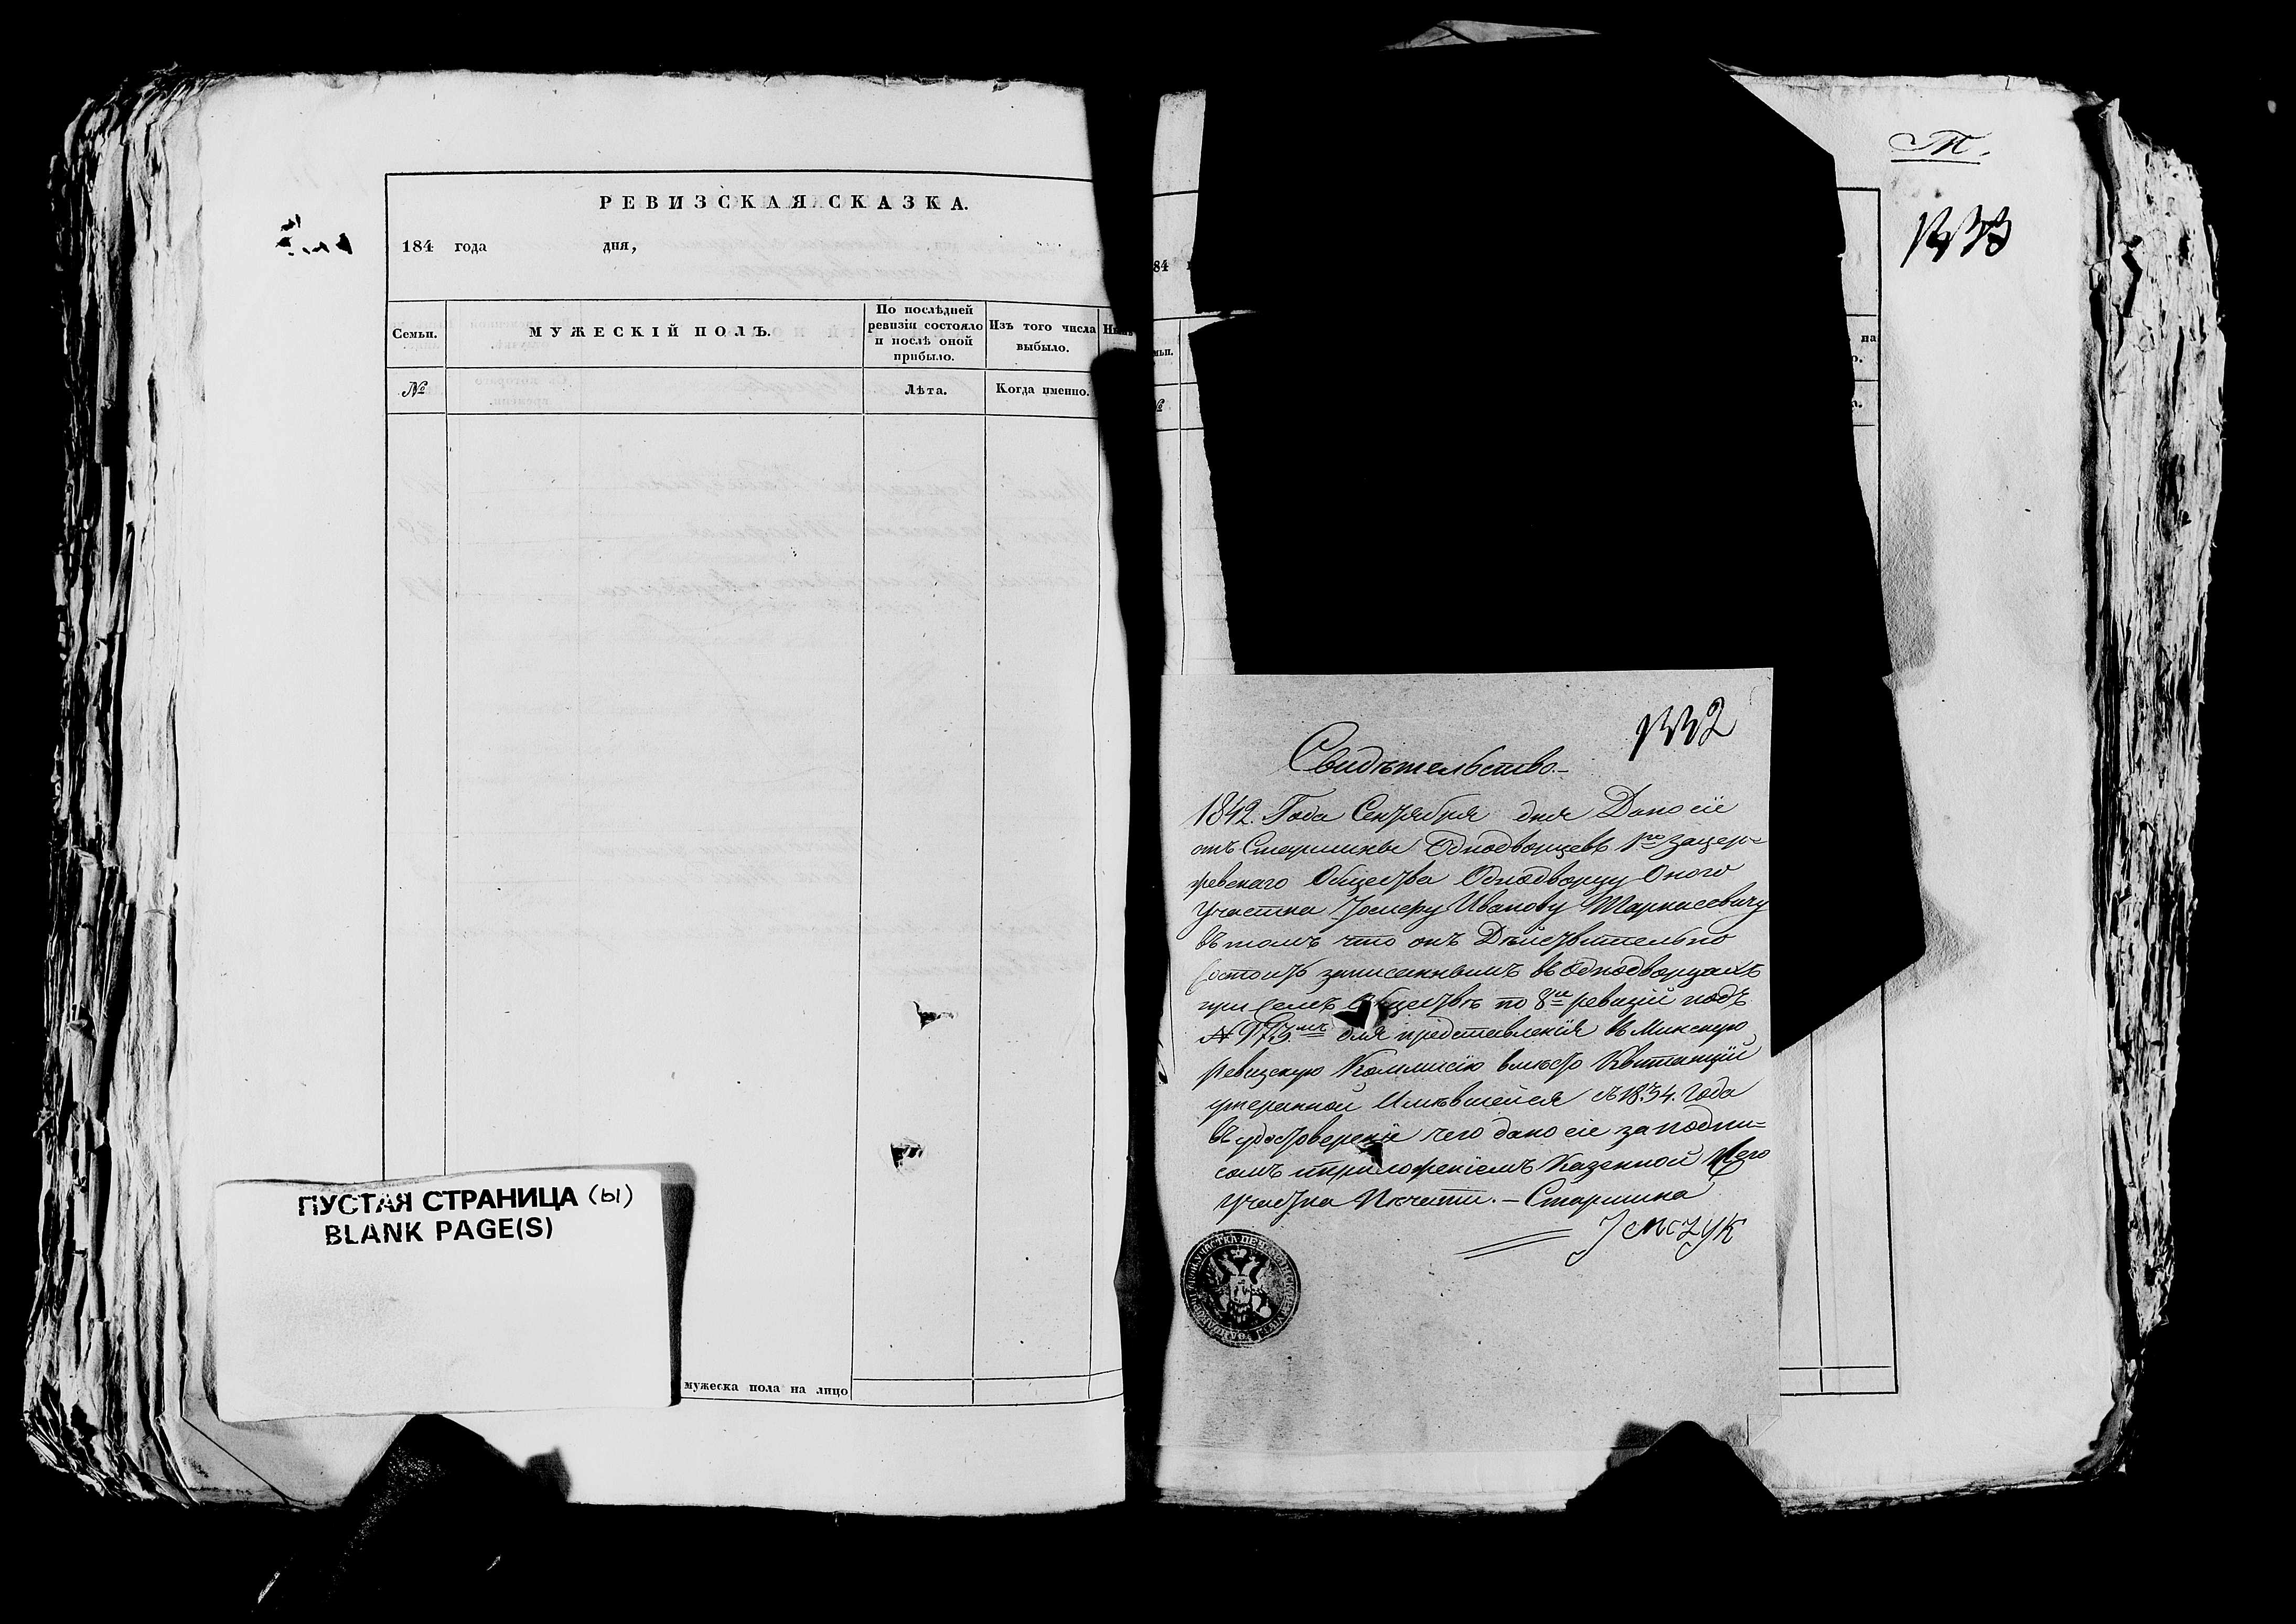 РЕВИЗСКАЯ СКАЗКА.
184 года дня,
Семьи.
МУЖЕСКІЙ ПОЛЪ.
По послѣдней ревизіи состояло и послѣ оной прибыло.
Изъ того числа выбыло.
№
Лѣта.
Когда именно.
мужеска пола на лицо
ПУСТАЯ СТРАНИЦА (Ы)
BLANK PAGE(S)
84
№
на
Т.
1333
1332
Свидѣтельство.-
1842. Года Сентября дня Дано сіе
отъ Старшины Однодворцевъ 1го
Общества Однодворцу Оного
Участка Іосифу Иванову
въ томъ что онъ Дѣйствительно
состоитъ записаннымъ въ Однодворцахъ
при семъ Обществѣ по 8й ревизіи подъ
№ 973мъ для представленія въ Минскую
Ревизскую Коммисію вмѣсто Квитанціи
утерянной Имѣвшейся съ 1834. года
въ удостовереніе чего дано сіе за подпи=
сомъ и приложеніемъ Казенной 1го
участка Печати. — Старшина